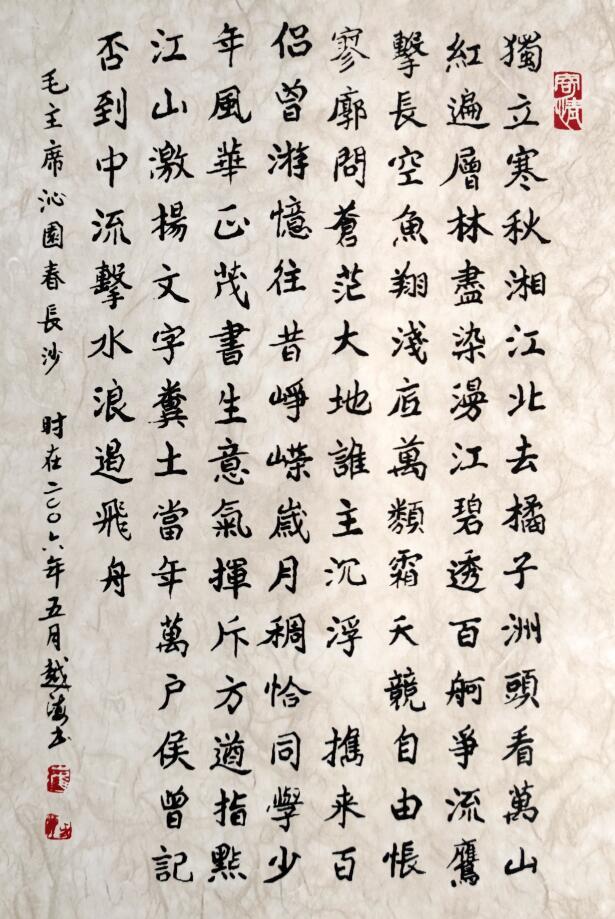 獨立寒秋湘江北去橘子洲頭看萬山
紅遍層林盡染漫江碧透百舸爭流鷹
擊長空魚翔淺底萬類霜天競自由悵
寥廓問蒼茫大地誰主沉浮 攜來百
侶曾游憶往昔崢嶸歲月稠恰同學少
年風華正茂書生意氣揮斥方遒指點
江山激揚文字糞土當年萬户侯曾記
否到中流擊水浪遏飛舟
毛主席沁園春長沙 时在二〇〇六年五月越海书